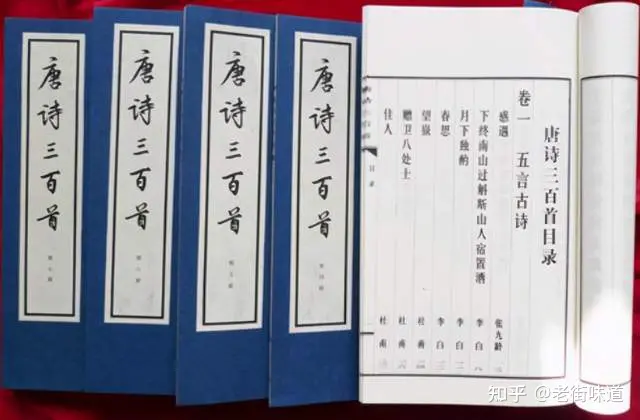 唐诗三百首
唐诗三百首
唐诗三百首
唐诗三百首
唐诗三百首目录
卷一 五言古诗
感遇 张九龄
下终南山过斛斯山人宿置酒 李白
月下独酌 李白
春思 李白
望嶽 杜甫
赠卫八处士 杜甫
佳人 杜甫
目录
知乎 @老街味道